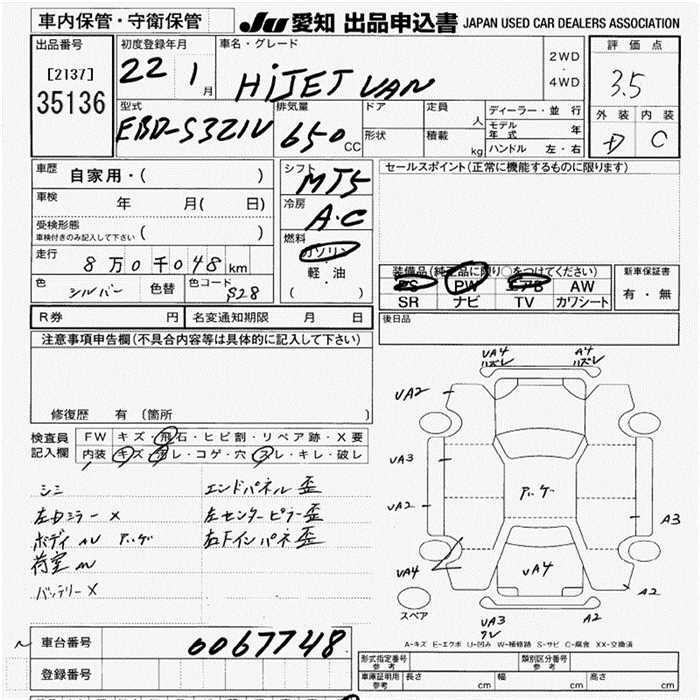 車内保管・守衛保管
JU 愛知 出品申込書 JAPAN USED CAR DEALERS ASSOCIATION
出品番号
[2137]
35136
初度登録年月
22 1 月
車名・グレード
HiJET VAN
2WD
・
4WD
評価点
3.5
外装 内装
D C
型式
EBD-S321V
排気量
650 CC
ドア
形状
定員 人
積載 kg
ディーラー・並行
モデル年式 年
ハンドル 左・右
車歴 自家用・( )
車検 年 月( 日)
受検形態
車検付きのみ記入して下さい ( )
走行 8万0千048 km
色 シルバー 色替 色コード S28
シフト MT5
冷房 A・C
燃料
ガソリン
・
軽・油
( )
セールスポイント(正常に機能するものに限ります)
装備品(純正品に限り○をつけてください)
PS PW エアB AW
SR ナビ TV カワシート
新車保証書
有・無
R券 円 名変通知期限 月 日
後日品
注意事項申告欄(不具合内容等は具体的に記入して下さい)
修復歴 有 〔箇所 〕
検査員記入欄
FW キズ・飛石・ヒビ割・リペア跡・X要
内装 キズ・汚レ・コゲ・穴・スレ・キレ・破レ
シミ エンドパネル歪
左右ミラーX 左センターピラー歪
ボディ 右下インパネ歪
荷室
バッテリーX
UA4
ハズレ
A4
ハズレ
UA2
UA3
UA2
UA4
A3
A2
UA4
UA3
A2
スペア
A-キズ E-エクボ U-凹み W-補修跡 S-サビ C-腐食 XX-交換済
車台番号 0067748
登録番号
形式指定番号
参考
類別区分番号
参考
車庫証明用
参考
長さ cm 幅 cm 高さ cm